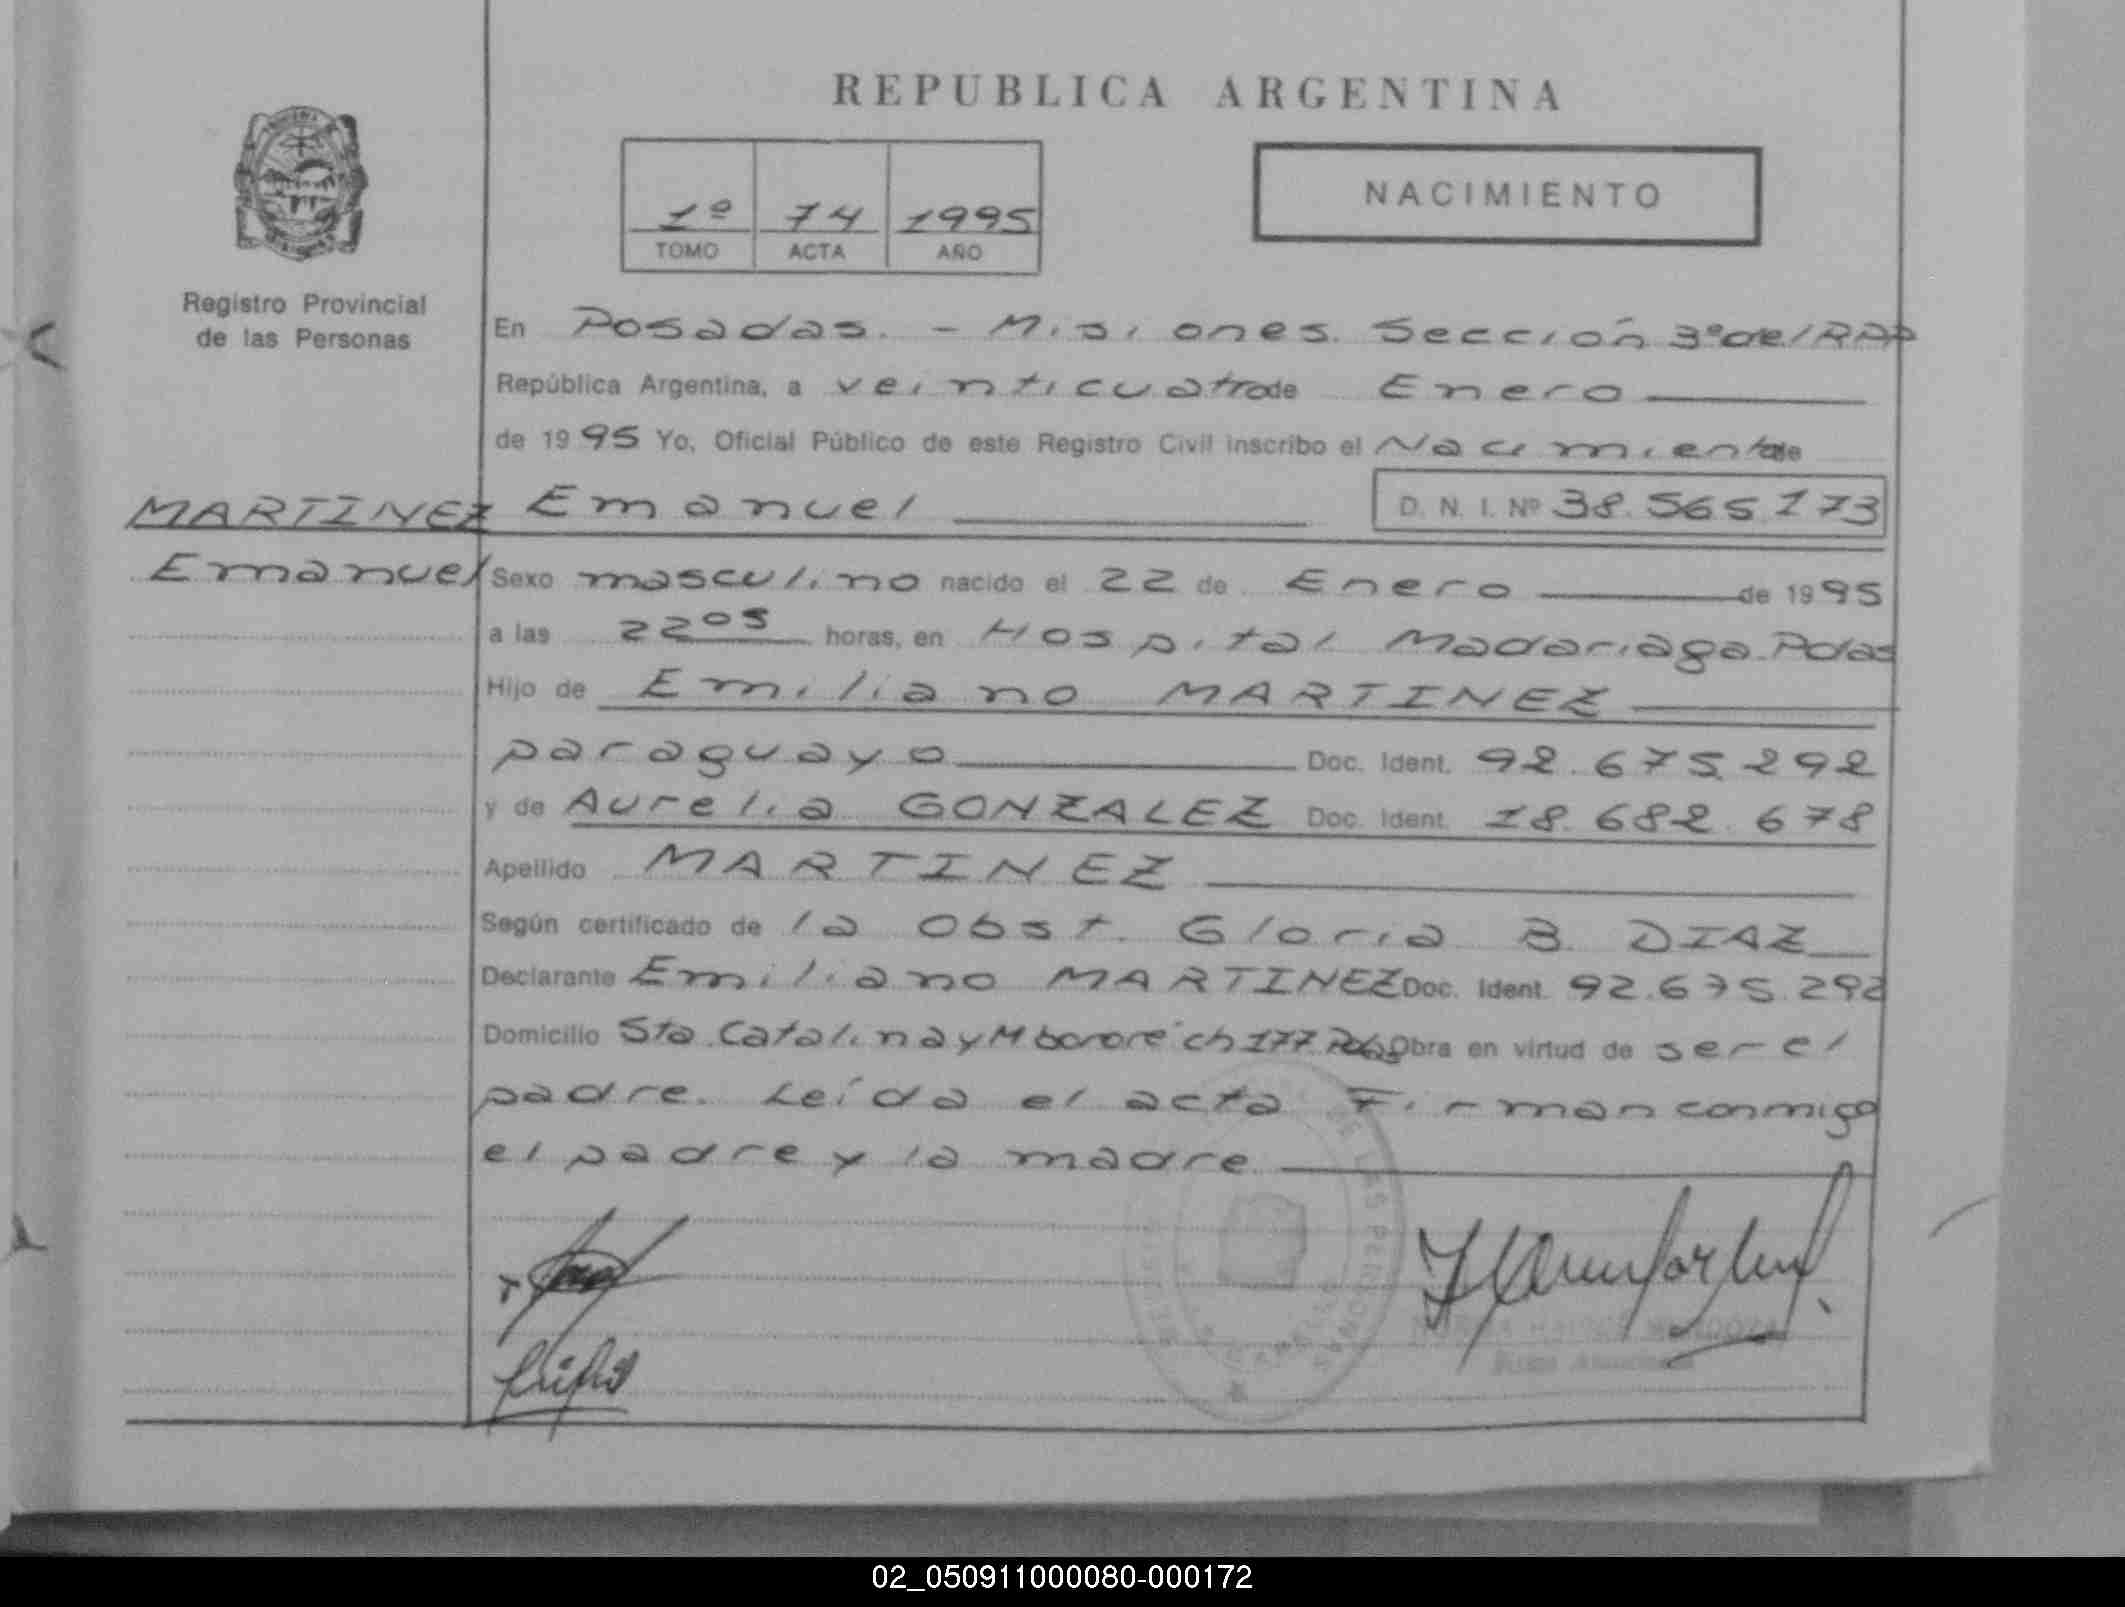 REPUBLICA ARGENTINA
1º 74 1995
TOMO ACTA AÑO
NACIMIENTO
Registro Provincial
de las Personas
En Posadas. - Misiones. Sección 3º del RPP
República Argentina, a veinticuatro de Enero
de 1995 Yo, Oficial Público de este Registro Civil inscribo el Nacimiento de
MARTINEZ Emanuel D. N. I. Nº 38.565.173
Emanuel
Sexo masculino nacido el 22 de Enero de 1995
a las 22 05 horas, en Hospital Madariaga Pdas
Hijo de Emiliano MARTINEZ
paraguayo Doc. Ident. 92.675.292
y de Aurelia GONZALEZ Doc. Ident. 18.682.678
Apellido MARTINEZ
Según certificado de la Obst. Gloria B. DIAZ
Declarante Emiliano MARTINEZ Doc. Ident. 92.675.292
Domicilio Sta. Catalina y Mbororé ch 177 Obra en virtud de ser el
padre. Leída el acta Firman conmigo
el padre y la madre
DE LAS PERSONAS
02_050911000080-000172